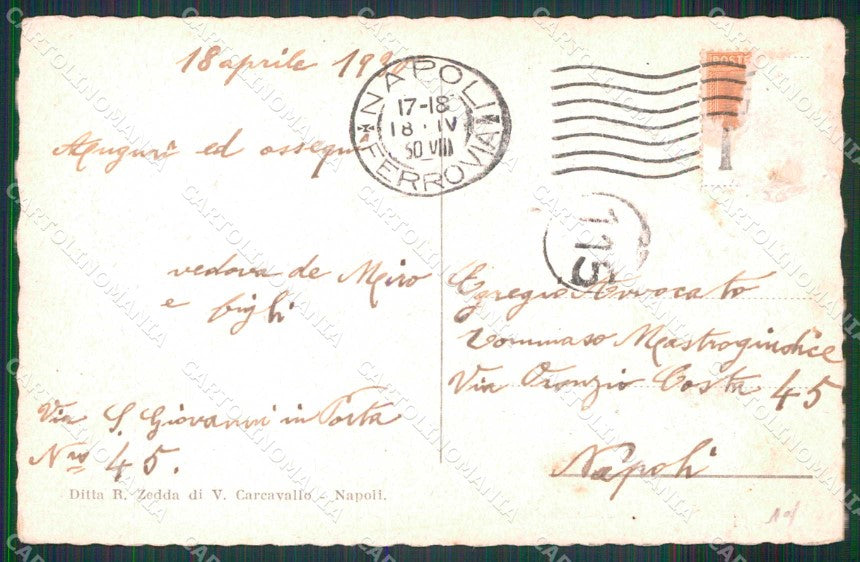 18 aprile 1930
NAPOLI
17-18
18 · IV
30 VIII
FERROVIA
Auguri ed ossequi
115
vedova de Miro
e figli
Egregio Avvocato
Tommaso Mastrogiudice
Via Oronzio Costa 45
Via S. Giovanni in Porta
Nro 45.
Napoli
Ditta R. Zedda di V. Carcavallo - Napoli.
CARTOLINOMANIA